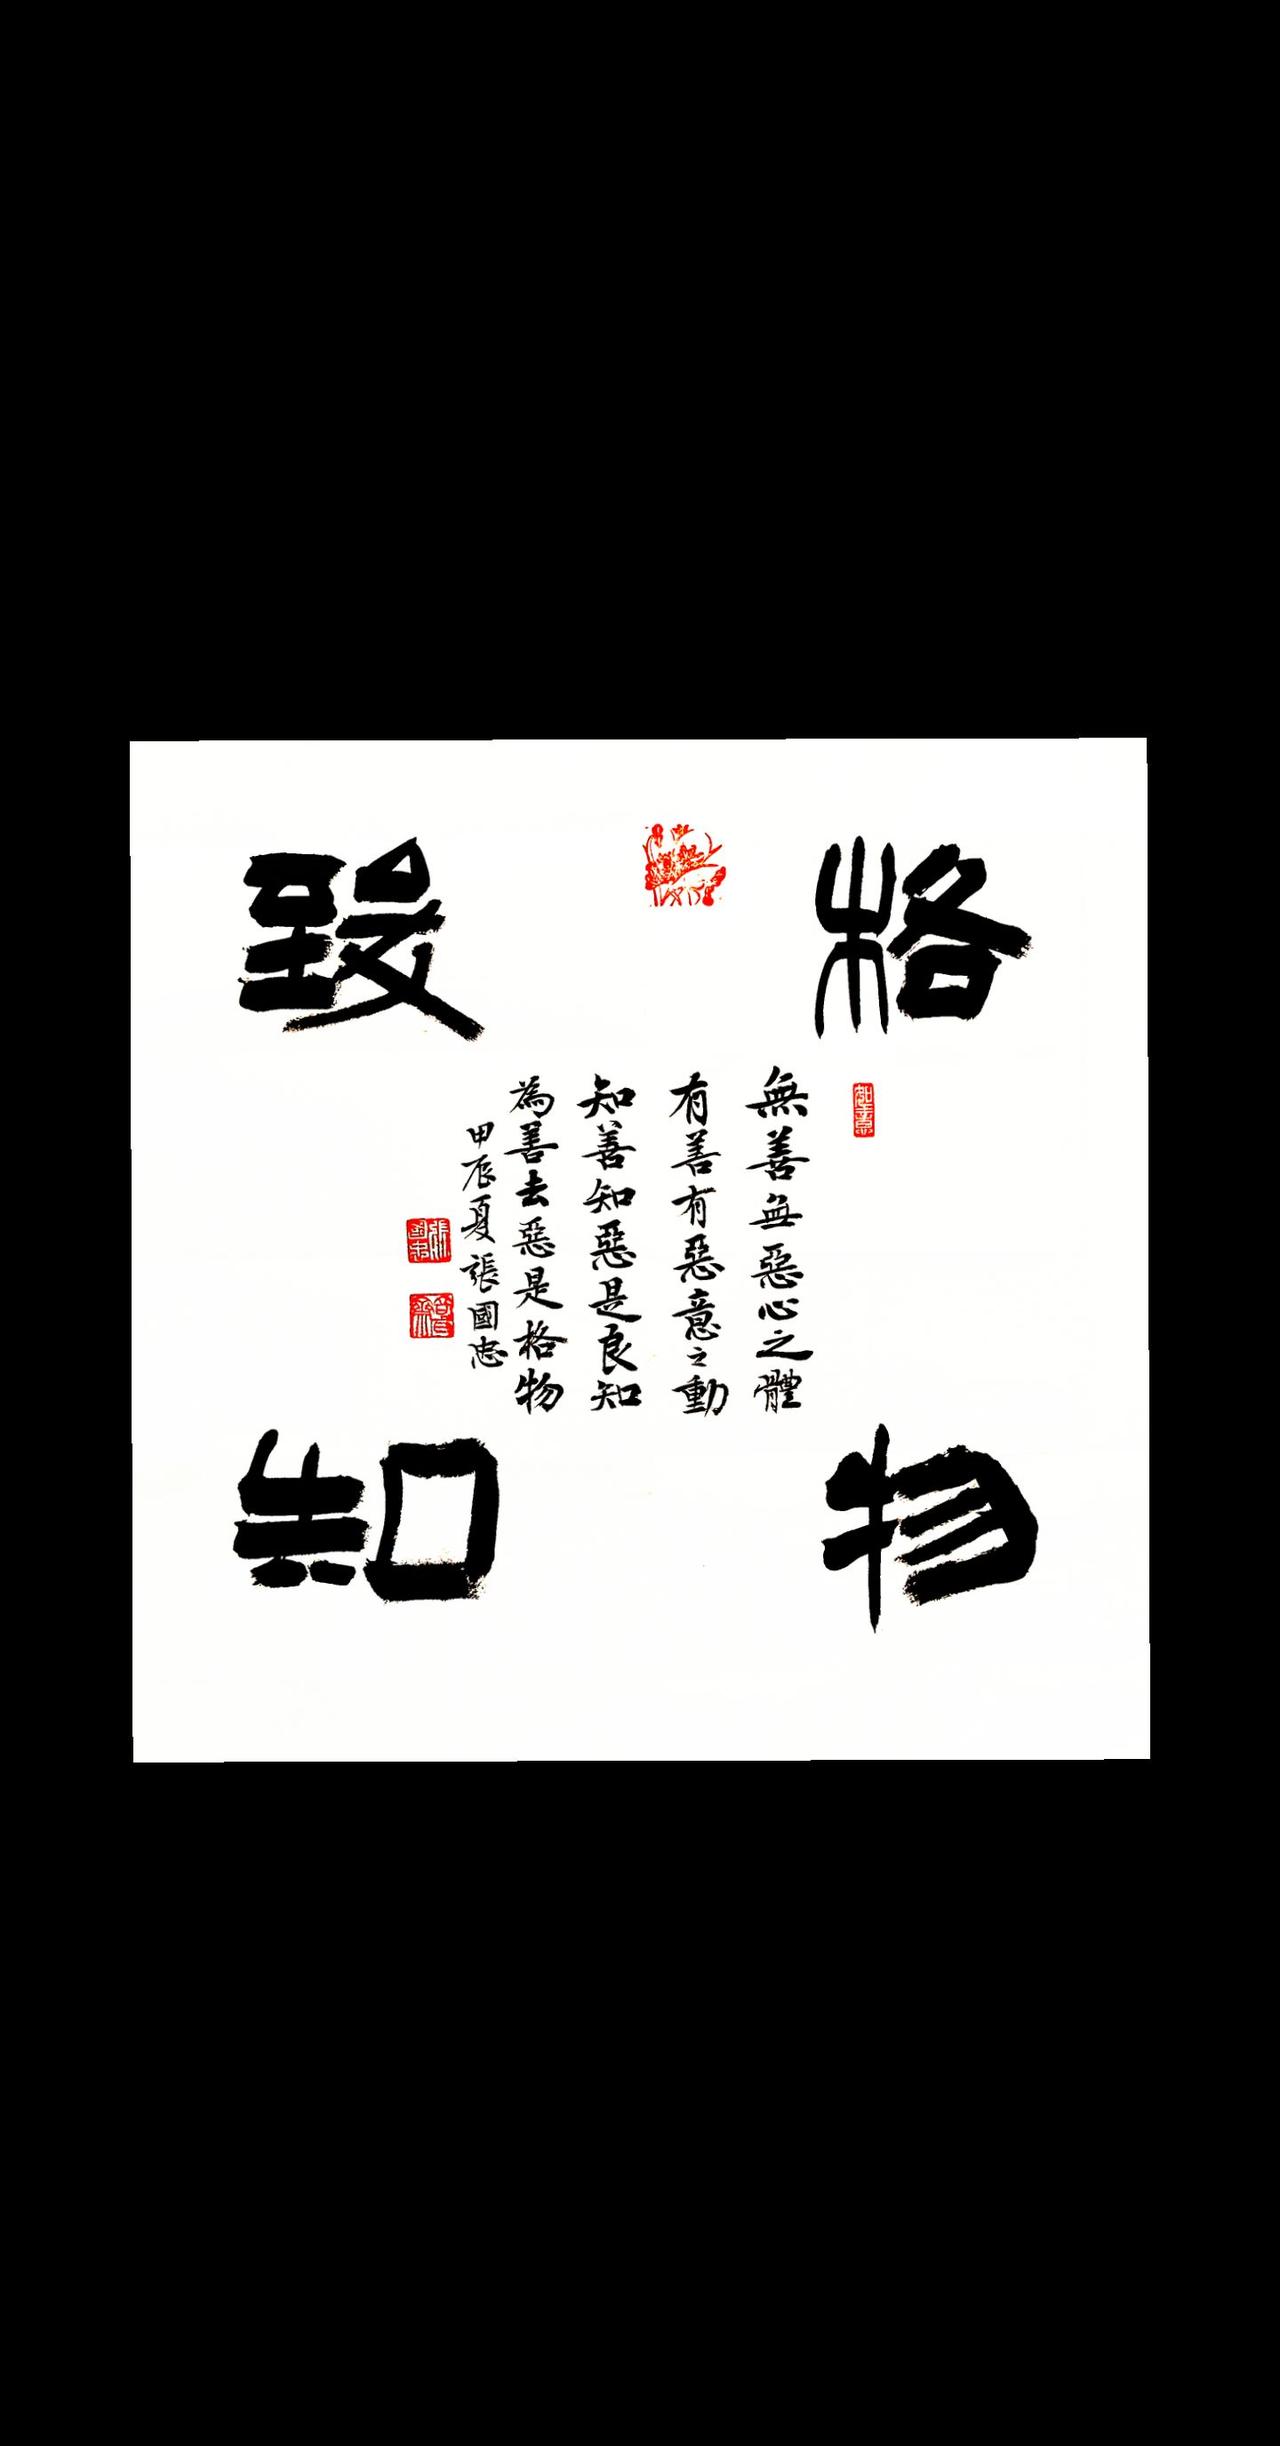 格物
致知
無善無惡心之體
有善有惡意之動
知善知惡是良知
為善去惡是格物
甲辰夏張國忠
如意
張國忠